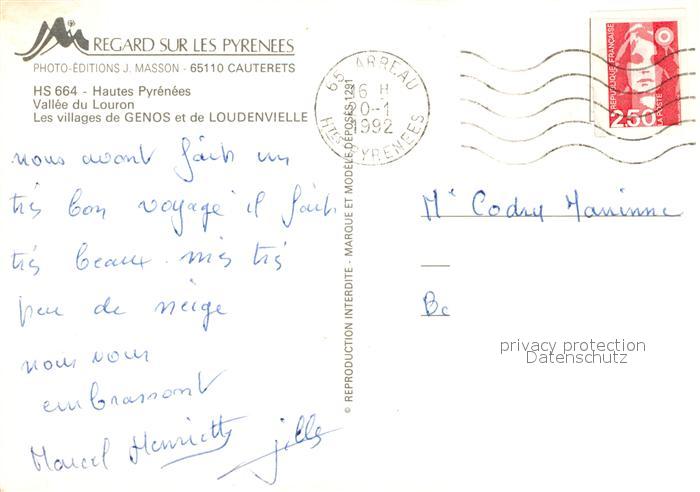 REGARD SUR LES PYRENEES
PHOTO-ÉDITIONS J. MASSON - 65110 CAUTERETS
HS 664 - Hautes Pyrénées
Vallée du Louron
Les villages de GENOS et de LOUDENVIELLE
nous avont fait un
très bon voyage il fait
très beaux mes très
peu de neige
nous vous
embrassont
Marcel Henriette
© REPRODUCTION INTERDITE - MARQUE ET MODÈLE DÉPOSÉS 1291
65 ARREAU
16 H
20-1
1992
HTES PYRENEES
REPUBLIQUE FRANÇAISE
2,50
LA POSTE
Codry
Bc
privacy protection
Datenschutz